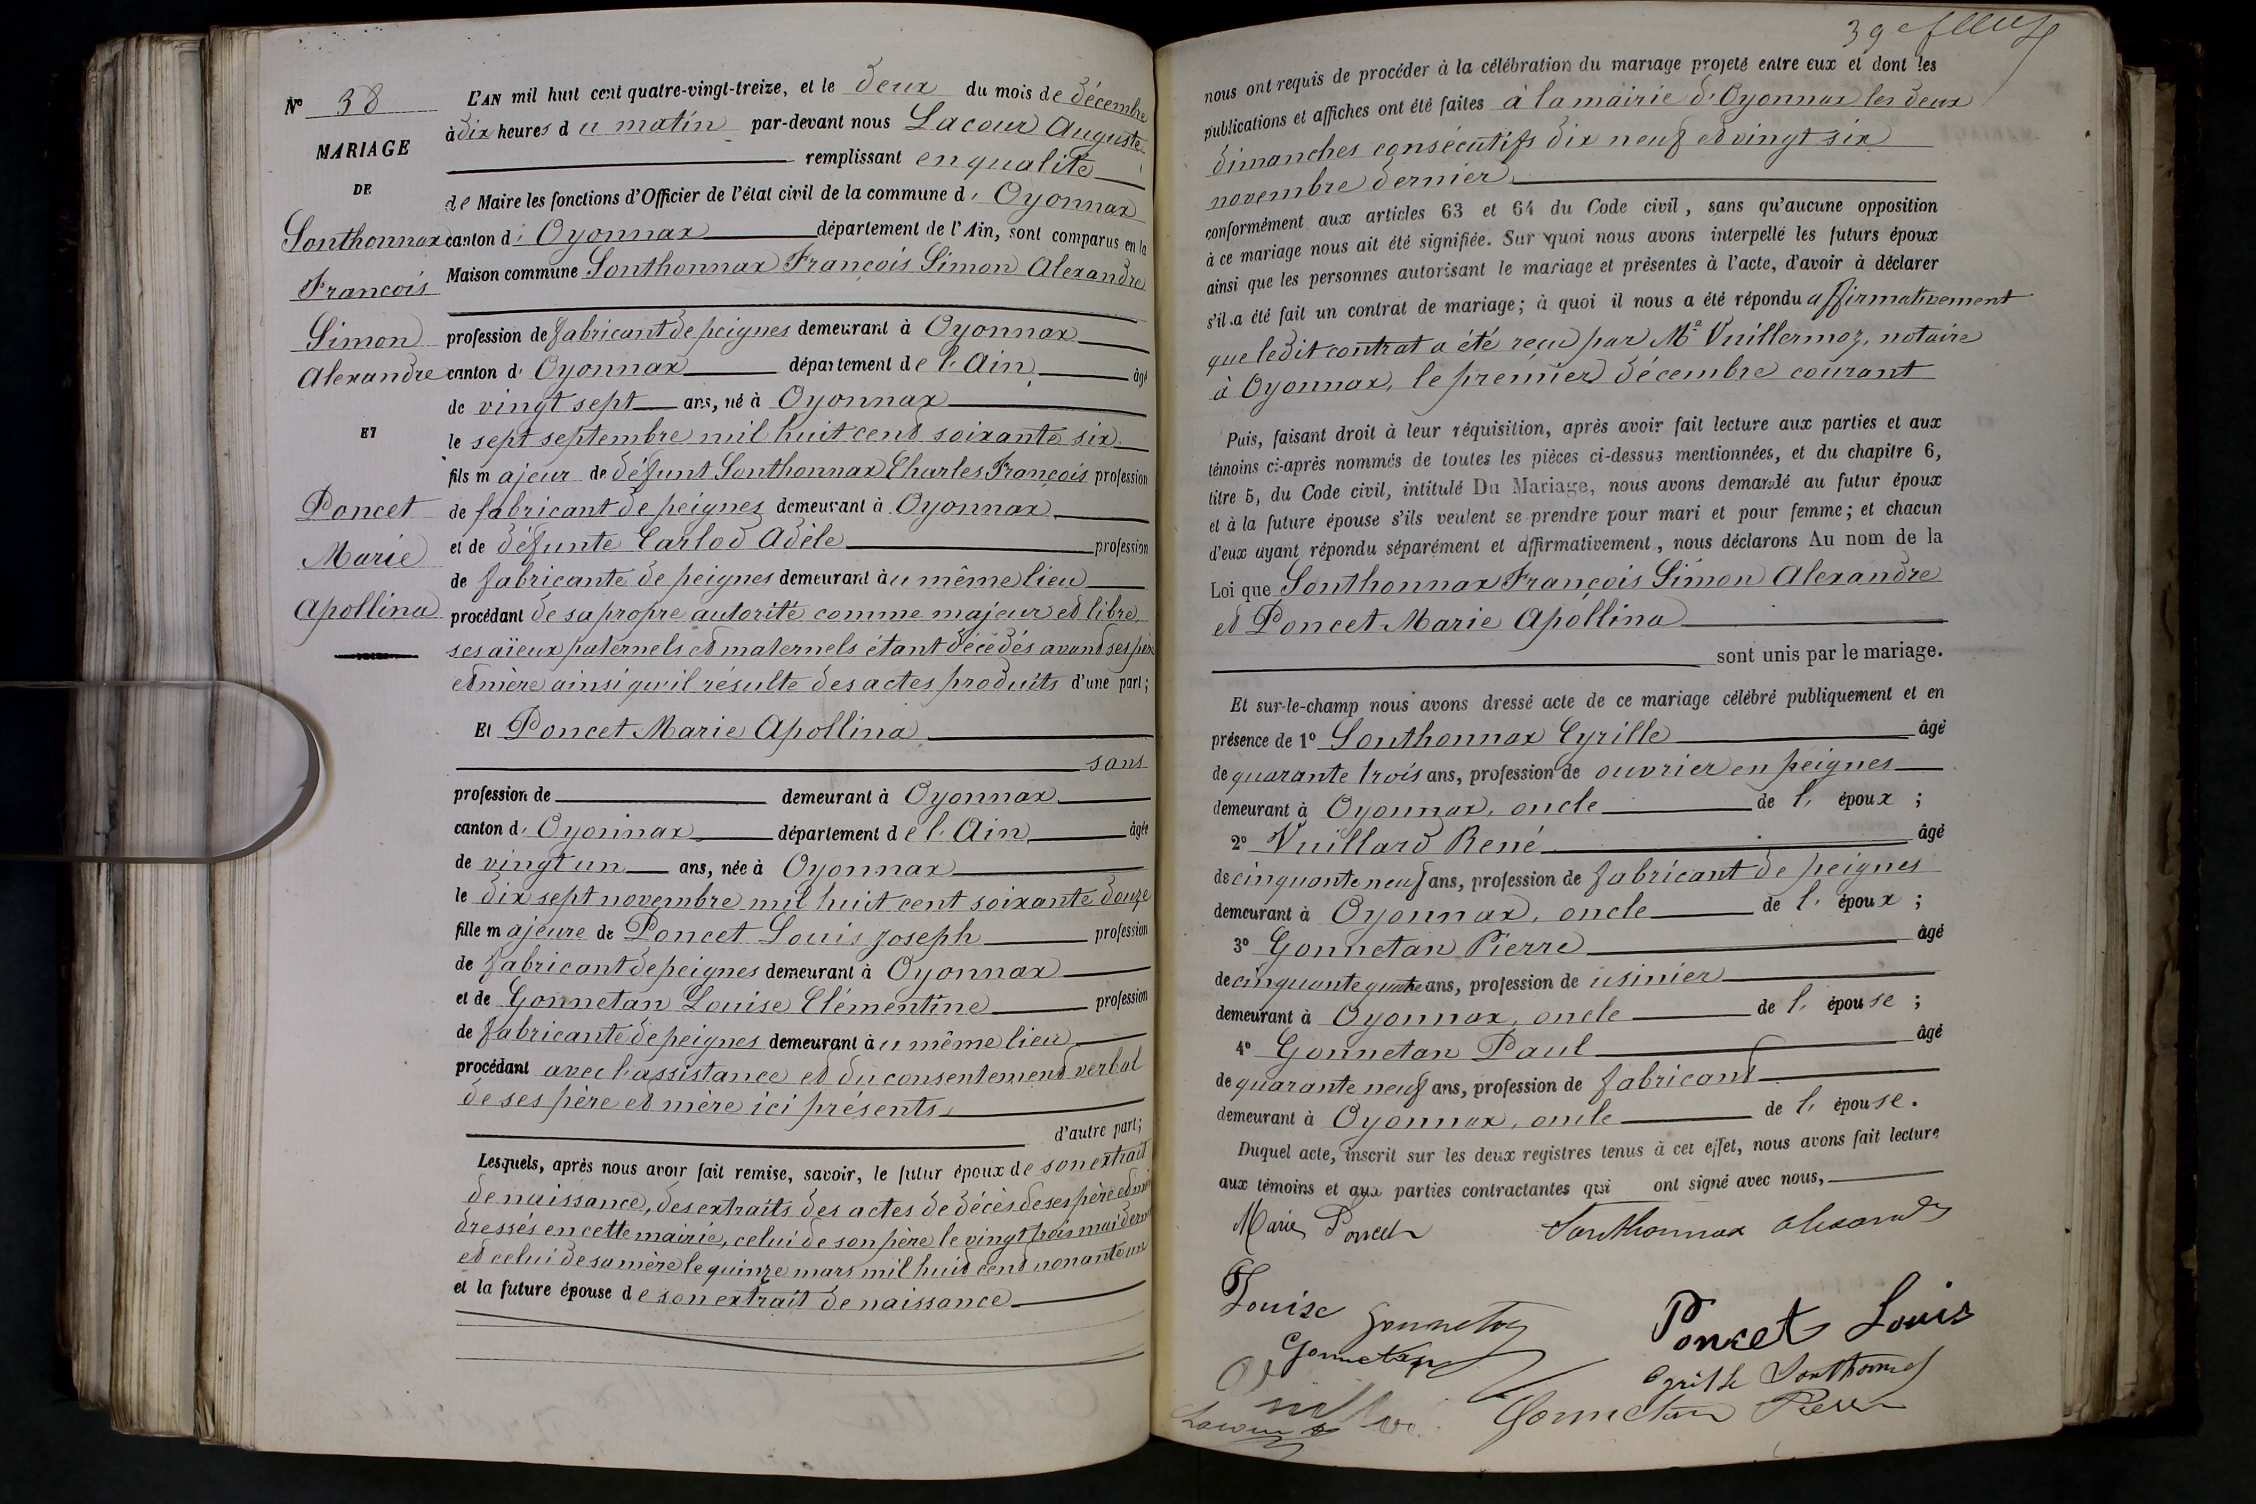 N° 38
MARIAGE
DE
Sonthonnax
François
Simon
Alexandre
ET
Poncet
Marie
Apollina
L'AN mil huit cent quatre-vingt-treize, et le deux du mois de décembre
à dix heures du matin par-devant nous Lacour Auguste
remplissant en qualité
de Maire les fonctions d'Officier de l'état civil de la commune d' Oyonnax
canton d' Oyonnax département de l'Ain, sont comparus en la
Maison commune Sonthonnax François Simon Alexandre
profession de fabricant de peignes demeurant à Oyonnax
canton d' Oyonnax département de l'Ain âgé
de vingt sept ans, né à Oyonnax
le sept septembre mil huit cent soixante six
fils majeur de défunt Sonthonnax Charles François profession
de fabricant de peignes demeurant à Oyonnax
et de défunte Carlod Adèle profession
de fabricante de peignes demeurant au même lieu
procédant de sa propre autorité comme majeur et libre,
ses aïeux paternels et maternels étant décédés avant ses père
et mère ainsi qu'il résulte des actes produits d'une part;
Et Poncet Marie Apollina
sans
profession de demeurant à Oyonnax
canton d' Oyonnax département de l'Ain âgée
de vingt un ans, née à Oyonnax
le dix sept novembre mil huit cent soixante douze
fille majeure de Poncet Louis Joseph profession
de fabricant de peignes demeurant à Oyonnax
et de Gonnetan Louise Clémentine profession
de fabricante de peignes demeurant au même lieu
procédant avec l'assistance et du consentement verbal
de ses père et mère ici présents,
d'autre part;
Lesquels, après nous avoir fait remise, savoir, le futur époux de son extrait
de naissance, des extraits des actes de décès de ses père et mère
dressés en cette mairie, celui de son père le vingt trois mai dernier
et celui de sa mère le quinze mars mil huit cent nonante un
et la future épouse de son extrait de naissance
39e feuil
nous ont requis de procéder à la célébration du mariage projeté entre eux et dont les
publications et affiches ont été faites à la mairie d'Oyonnax les deux
dimanches consécutifs dix neuf et vingt six
novembre dernier
conformément aux articles 63 et 64 du Code civil, sans qu'aucune opposition
à ce mariage nous ait été signifiée. Sur quoi nous avons interpellé les futurs époux
ainsi que les personnes autorisant le mariage et présentes à l'acte, d'avoir à déclarer
s'il a été fait un contrat de mariage; à quoi il nous a été répondu affirmativement
que ledit contrat a été reçu par Me Vuillermoz, notaire
à Oyonnax, le premier décembre courant
Puis, faisant droit à leur réquisition, après avoir fait lecture aux parties et aux
témoins ci-après nommés de toutes les pièces ci-dessus mentionnées, et du chapitre 6,
titre 5, du Code civil, intitulé Du Mariage, nous avons demandé au futur époux
et à la future épouse s'ils veulent se prendre pour mari et pour femme; et chacun
d'eux ayant répondu séparément et affirmativement, nous déclarons Au nom de la
Loi que Sonthonnax François Simon Alexandre
et Poncet Marie Apollina
sont unis par le mariage.
Et sur-le-champ nous avons dressé acte de ce mariage célébré publiquement et en
présence de 1° Sonthonnax Cyrille âgé
de quarante trois ans, profession de ouvrier en peignes
demeurant à Oyonnax, oncle de l'époux;
2° Vuillard René âgé
de cinquante neuf ans, profession de fabricant de peignes
demeurant à Oyonnax, oncle de l'époux;
3° Gonnetan Pierre âgé
de cinquante quatre ans, profession de usinier
demeurant à Oyonnax, oncle de l'épouse;
4° Gonnetan Paul âgé
de quarante neuf ans, profession de fabricant
demeurant à Oyonnax, oncle de l'épouse.
Duquel acte, inscrit sur les deux registres tenus à cet effet, nous avons fait lecture
aux témoins et aux parties contractantes qui ont signé avec nous,
Marie Poncet Sonthonnax Alexandre
Louise Gonnetan Poncet Louis
Gonnetan Cyrille Sonthonnax
Gonnetan Pierre
Lacour